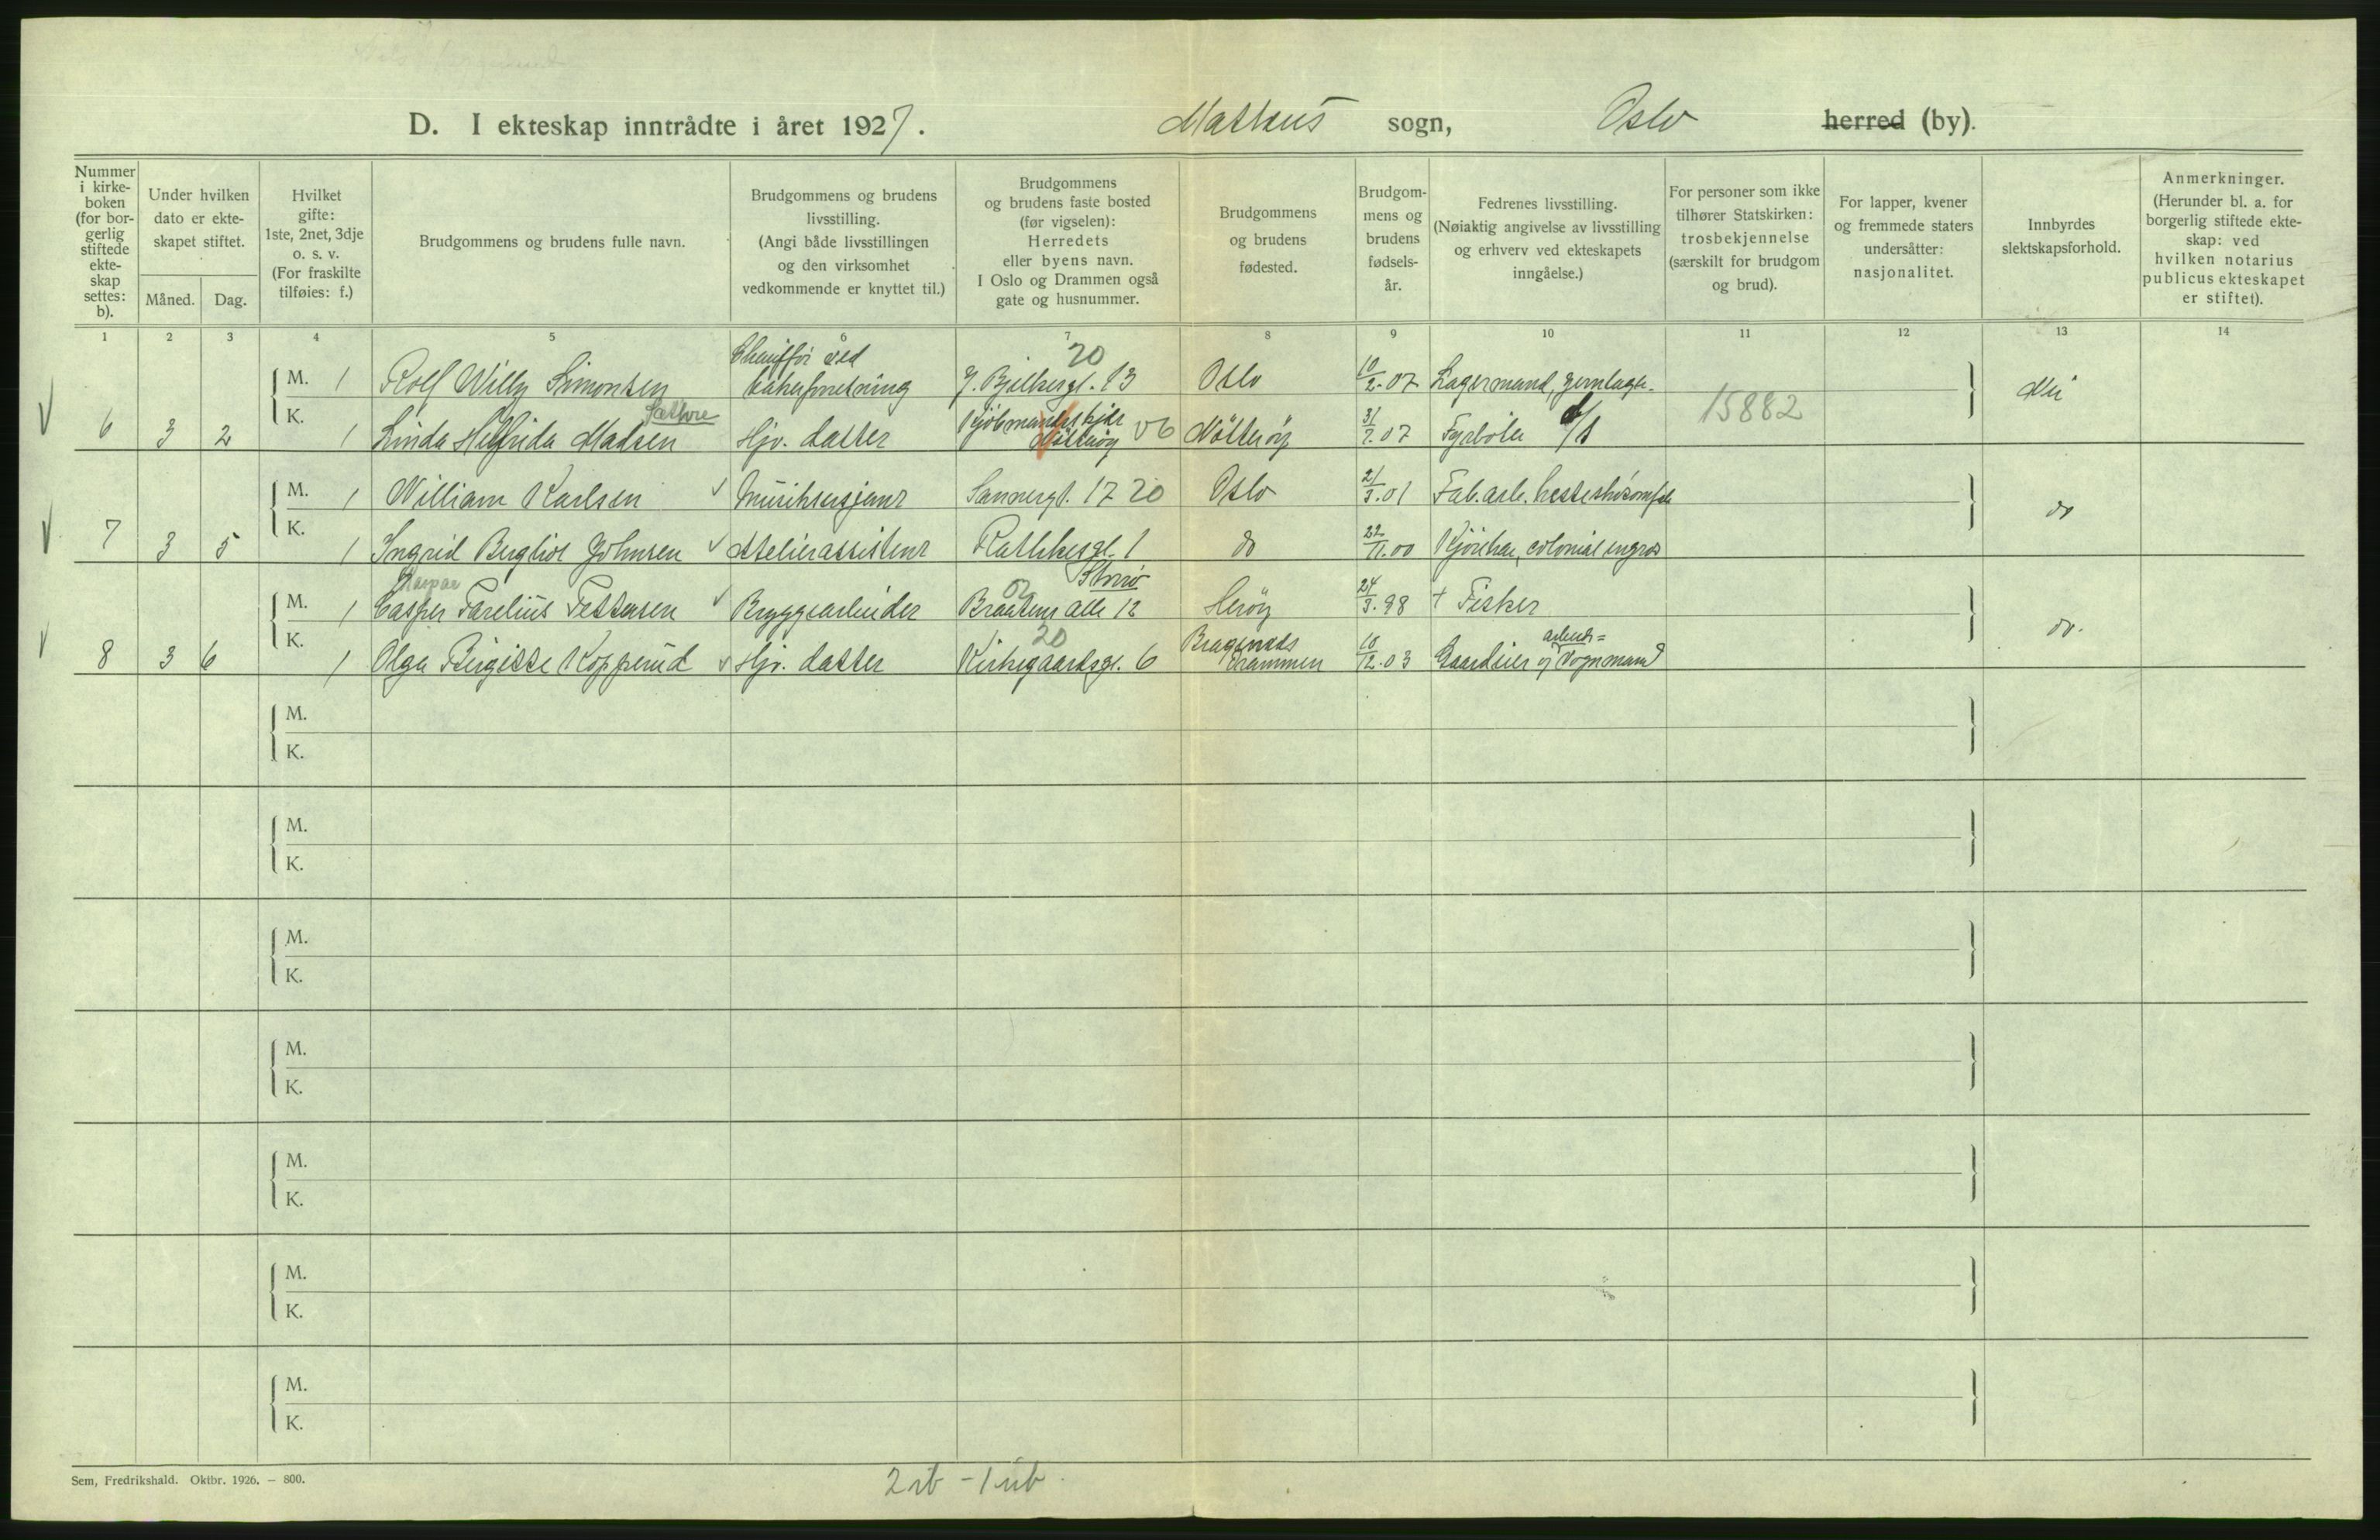 D. I ekteskap inntrådte i året 1927. Matheus sogn, Oslo herred (by).
Nummer i kirke-boken (for bor-gerlig stiftede ekte-skap settes: b).
Under hvilken dato er ekte-skapet stiftet.
Måned. Dag.
Hvilket gifte: 1ste, 2net, 3dje o. s. v. (For fraskilte tilføies: f.)
Brudgommens og brudens fulle navn.
Brudgommens og brudens livsstilling. (Angi både livsstillingen og den virksomhet vedkommende er knyttet til.)
Brudgommens og brudens faste bosted (før vigselen): Herredets eller byens navn. I Oslo og Drammen også gate og husnummer.
Brudgommens og brudens fødested.
Brudgom-mens og brudens fødsels-år.
Fedrenes livsstilling. (Nøiaktig angivelse av livsstilling og erhverv ved ekteskapets inngåelse.)
For personer som ikke tilhører Statskirken: trosbekjennelse (særskilt for brudgom og brud).
For lapper, kvener og fremmede staters undersåtter: nasjonalitet.
Innbyrdes slektskapsforhold.
Anmerkninger. (Herunder bl. a. for borgerlig stiftede ekte-skap: ved hvilken notarius publicus ekteskapet er stiftet).
1 2 3 4 5 6 7 8 9 10 11 12 13 14
Chauffør ved 20
M. 1 Rolf Willy Simonsen bakerforretning J. Bjelkesgt. 13 Oslo 10/2.07 Lagermand, jernlager.
Sæthre
6 3 2 K. 1 Linda Helfrida Madsen Hjv. datter Kjöbmandskjær Nötteröy 06 Nötteröy 31/7.07 Fyrböter d/s 15882
M. 1 William Karlsen Musikersejent Sannergt. 17 20 Oslo 21/3.01 Fab. arb. hesteskosömfab
7 3 5 K. 1 Ingrid Bergliot Johnsen Atelierassistent Rathkesgt. 1 do 22/11.00 Kjörekar, colonial engros do
Kaspar 02 Storö
M. 1 Casper Farelius Pettersen Bryggearbeider Braatens alle 12 Heröy 24/3.98 + Fisker
20 Bragernæs arbeids=
8 3 6 K. 1 Olga Birgitte Kopperud Hjv. datter Kirkegaardsgt. 6 Drammen 10/12.03 Gaardeier og Vognmand do.
M.
K.
M.
K.
M.
K.
M.
K.
M.
K.
M.
K.
M.
K.
Sem, Fredrikshald. Oktbr. 1926. – 800.
2 rb – 1 ub.